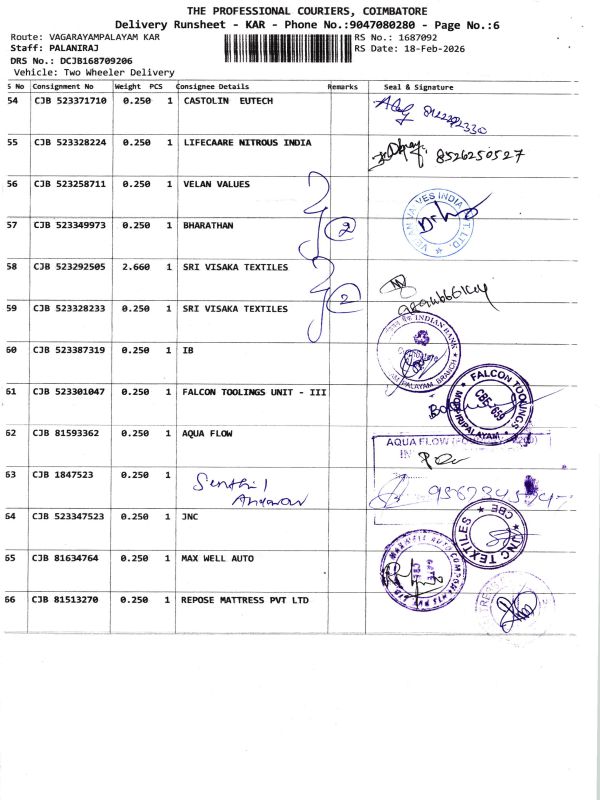 THE PROFESSIONAL COURIERS, COIMBATORE
Delivery Runsheet - KAR - Phone No.:9047080280 - Page No.:6
Route: VAGARAYAMPALAYAM KAR
RS No.: 1687092
Staff: PALANIRAJ
RS Date: 18-Feb-2026
DRS No.: DCJB168709206
Vehicle: Two Wheeler Delivery
S No Consignment No Weight PCS Consignee Details Remarks Seal & Signature
54 CJB 523371710 0.250 1 CASTOLIN EUTECH
55 CJB 523328224 0.250 1 LIFECAARE NITROUS INDIA 8526250527
56 CJB 523258711 0.250 1 VELAN VALUES
57 CJB 523349973 0.250 1 BHARATHAN 2
58 CJB 523292505 2.660 1 SRI VISAKA TEXTILES
59 CJB 523328233 0.250 1 SRI VISAKA TEXTILES 2
60 CJB 523387319 0.250 1 IB
INDIAN BANK
61 CJB 523301047 0.250 1 FALCON TOOLINGS UNIT - III
FALCON TOOLINGS
CBE-659
62 CJB 81593362 0.250 1 AQUA FLOW
AQUA FLOW
63 CJB 1847523 0.250 1 Senthil
Andavar
64 CJB 523347523 0.250 1 JNC
JNC TEXTILES CBE
65 CJB 81634764 0.250 1 MAX WELL AUTO
66 CJB 81513270 0.250 1 REPOSE MATTRESS PVT LTD